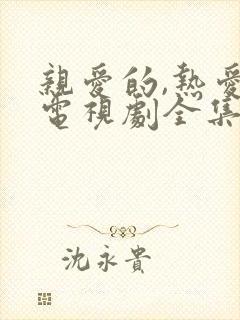 親愛的,熱愛
電視劇全集
沈永貴